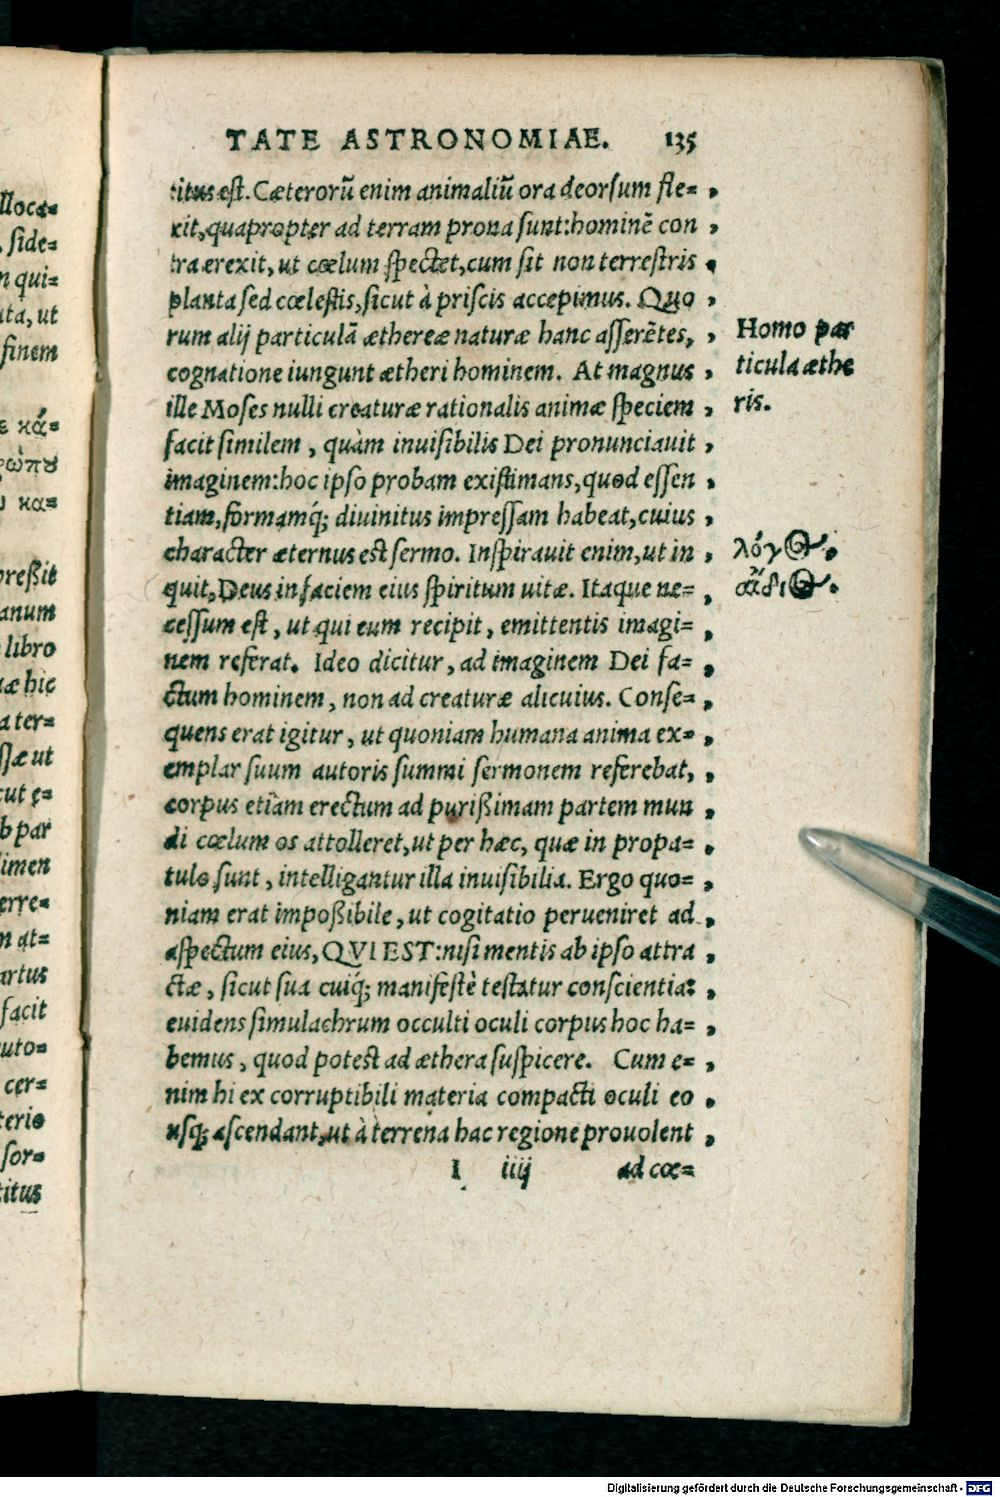 llocа=
, side=
n qui=
ita, ut
finem
ε κά=
ρώπȣ
υ κα=
preßit
anum
libro
uæ hic
a ter=
ssæ ut
cut e=
b par
limen
erre=
n at=
artus
facit
auto=
cer=
terio
for=
titus
TATE ASTRONOMIAE. 135
titus est. Cæterorū enim animaliū ora deorsum fle= ,
xit, quapropter ad terram prona sunt: hominē con ,
tra erexit, ut cœlum spectet, cum sit non terrestris ,
planta sed cœlestis, sicut à priscis accepimus. Quo ,
rum alij particulā æthereæ naturæ hanc asserētes, ,
Homo par
cognatione iungunt ætheri hominem. At magnus ,
ticula æthe
ille Moses nulli creaturæ rationalis animæ speciem ,
ris.
facit similem , quàm inuisibilis Dei pronunciauit ,
imaginem: hoc ipso probam existimans, quod essen ,
tiam, formamq́; diuinitus impressam habeat, cuius ,
character æternus est sermo. Inspirauit enim, ut in ,
λόγος,
quit, Deus in faciem eius spiritum uitæ. Itaque ne= ,
ἀΐδιος.
cessum est , ut qui eum recipit , emittentis imagi= ,
nem referat. Ideo dicitur , ad imaginem Dei fa= ,
ctum hominem , non ad creaturæ alicuius. Conse= ,
quens erat igitur , ut quoniam humana anima ex= ,
emplar suum autoris summi sermonem referebat, ,
corpus etiam erectum ad purißimam partem mun ,
di cœlum os attolleret, ut per hæc, quæ in propa= ,
tulo sunt , intelligantur illa inuisibilia. Ergo quo= ,
niam erat impoßibile , ut cogitatio perueniret ad ,
aspectum eius, QVI EST: nisi mentis ab ipso attra ,
ctæ , sicut sua cuiq́; manifestè testatur conscientia: ,
euidens simulachrum occulti oculi corpus hoc ha= ,
bemus , quod potest ad æthera suspicere. Cum e= ,
nim hi ex corruptibili materia compacti oculi eo ,
usq; ascendant, ut à terrena hac regione prouolent ,
I iiij ad cœ=
Digitalisierung gefördert durch die Deutsche Forschungsgemeinschaft - DFG